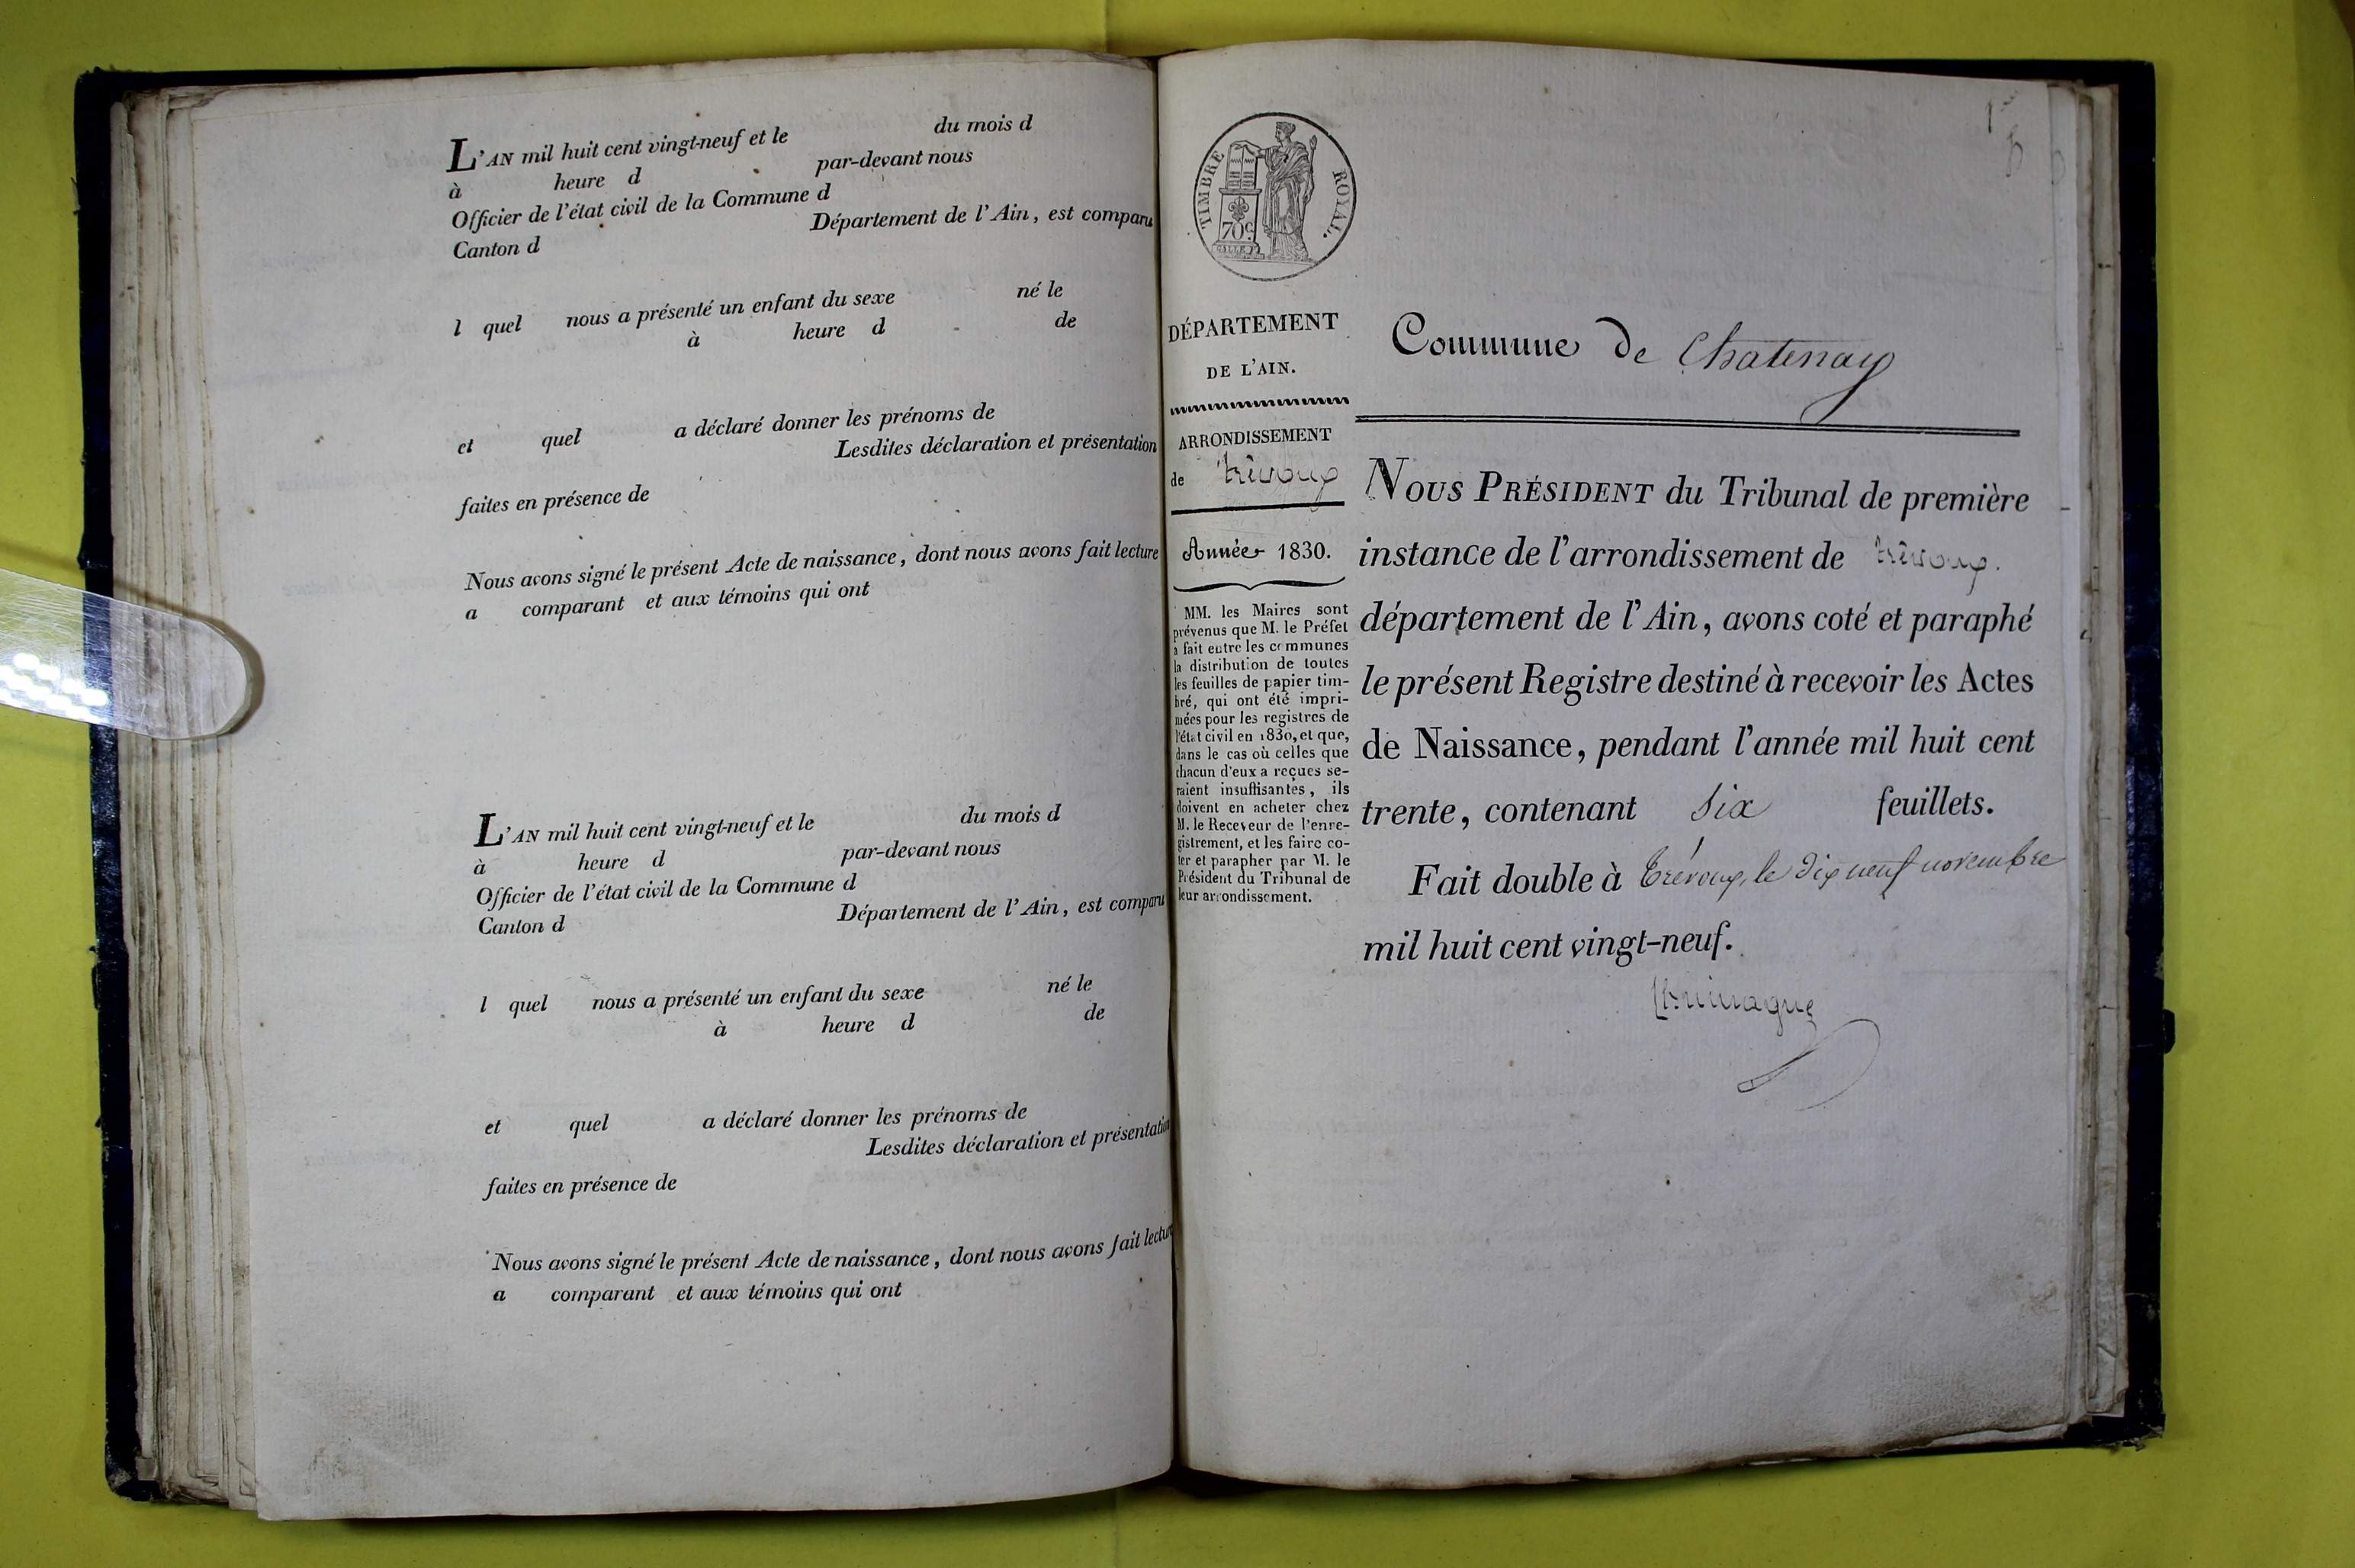 L'AN mil huit cent vingt-neuf et le du mois d
à heure d par-devant nous
Officier de l'état civil de la Commune d
Canton d Département de l'Ain, est comparu
l quel nous a présenté un enfant du sexe né le
à heure d de
et quel a déclaré donner les prénoms de
Lesdites déclaration et présentation
faites en présence de
Nous avons signé le présent Acte de naissance, dont nous avons fait lecture
a comparant et aux témoins qui ont
L'AN mil huit cent vingt-neuf et le du mois d
à heure d par-devant nous
Officier de l'état civil de la Commune d
Canton d Département de l'Ain, est comparu
l quel nous a présenté un enfant du sexe né le
à heure d de
et quel a déclaré donner les prénoms de
Lesdites déclaration et présentation
faites en présence de
Nous avons signé le présent Acte de naissance, dont nous avons fait lecture
a comparant et aux témoins qui ont
TIMBRE ROYAL.
70c
DÉPARTEMENT
DE L'AIN.
ARRONDISSEMENT
de Trévoux
Année 1830.
MM. les Maires sont
prévenus que M. le Préfet
a fait entre les communes
la distribution de toutes
les feuilles de papier tim-
bré, qui ont été impri-
mées pour les registres de
l'état civil en 1830, et que,
dans le cas où celles que
chacun d'eux a reçues se-
raient insuffisantes, ils
doivent en acheter chez
M. le Receveur de l'enre-
gistrement, et les faire co-
ter et parapher par M. le
Président du Tribunal de
leur arrondissement.
Commune de Chatenay
NOUS PRÉSIDENT du Tribunal de première
instance de l'arrondissement de Trévoux.
département de l'Ain, avons coté et paraphé
le présent Registre destiné à recevoir les Actes
de Naissance, pendant l'année mil huit cent
trente, contenant six feuillets.
Fait double à Trévoux, le dix neuf novembre
mil huit cent vingt-neuf.